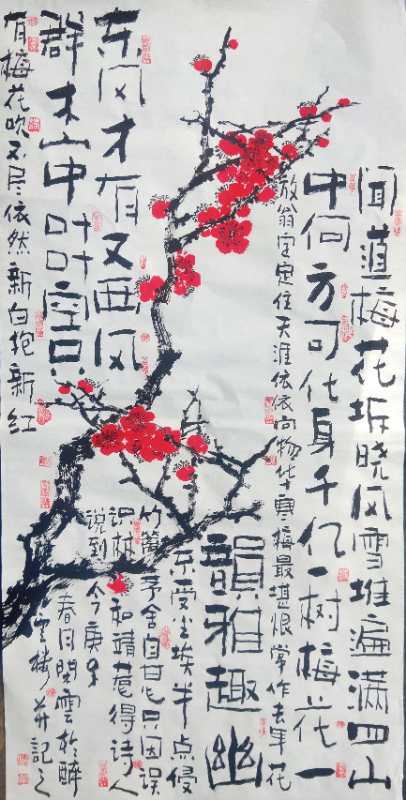 闻道梅花坼晓风雪堆遍满四山
中何方可化身千亿一树梅花一
放翁定定住天涯依依向物华寒梅最堪恨常作去年花
韻雅趣幽
不受尘埃半点侵
竹篱茅舍自甘心只因误
识林和靖惹得诗人
说到今庚子
春月閒雲於醉
雲楼并記之
东风才有又西风
群木山中叶叶空只
有梅花吹不尽依然新白抱新红